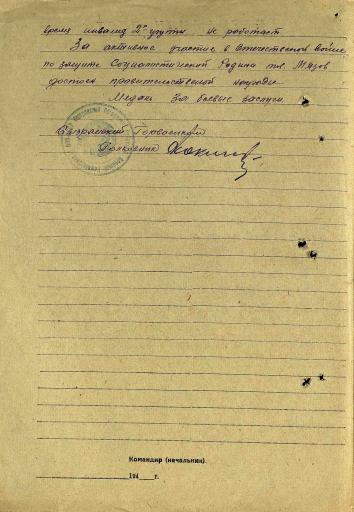 время инвалид 2й группы не работает
За активное участие в отечественной войне
по защите Социалистической Родины тов.
достоин правительственной награды
Медали За боевые заслуги.
Сызранский Горвоенком
Полковник
Командир (начальник)
194 г.